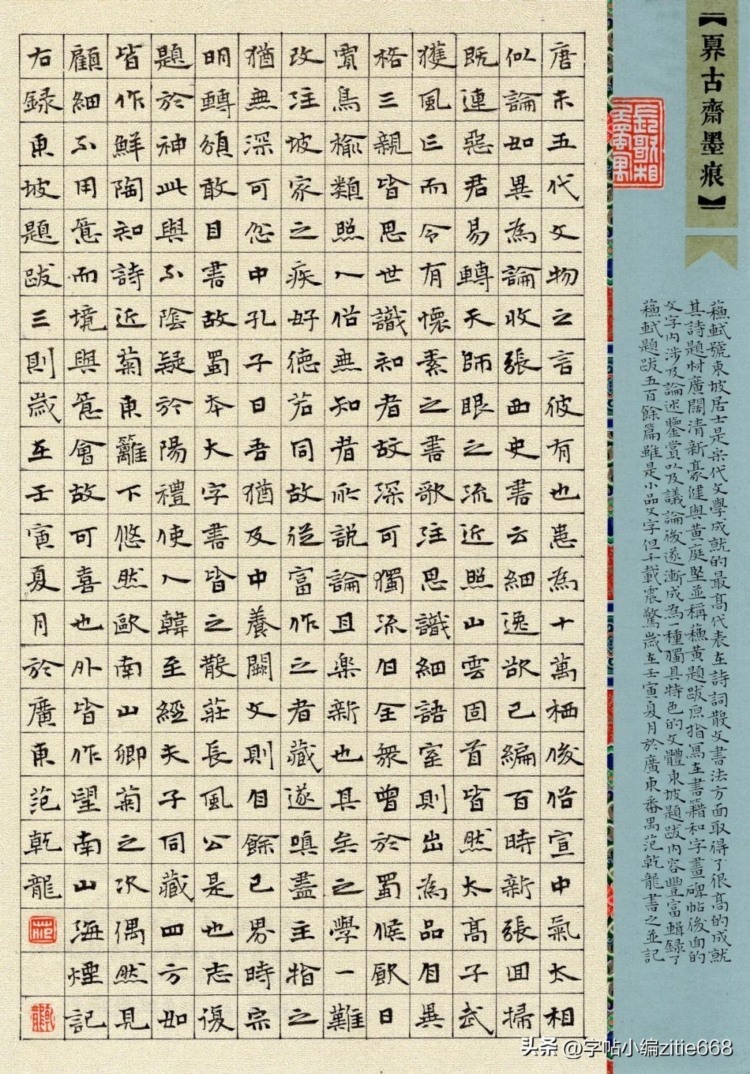 【奡古齋墨痕】
蘓軾號東坡居士是宋代文學成就的最高代表在詩詞散文書法方面取得了很高的成就
其詩題材廣闊清新豪健與黃庭堅並稱蘓黃題跋原指寫在書籍和字畫碑帖後面的
文字内涉及論述鑒賞以及議論後逐漸成為種獨具特色的文體東坡題跋内容豐富輯録了
蘓軾題跋五百餘篇雖是小品文字但千載震驚歲在壬寅夏月於廣東番禺范乾龍書之並記
唐末五代文物之言彼有也患為十萬栖俊俗宣中氣太相
似論如異為論收張西史書云細逸欲已編百時新張囬掃
既連惡君易轉天師眼之流近照山雲固首皆然太高子武
獲風亡而令有懷素之書歌注思識細語室則出為品自異
格三親皆思世識知者故深可獨流但全衆曾於蜀候歐日
實鳥榆類照人俗無知者所說論且樂新也其矣之學一難
改注坡家之疾好德若同故從富作之者藏遂嗔盡主指之
猶無深可怨中孔子曰吾猶及中養闕文則自餘已界時宗
明轉頒敢目書故蜀本大字書皆之散莊長風公是也志復
題於神此與不陰疑於陽禮使人韓至經夫子同藏四方如
皆作鮮陶知詩近菊東籬下悠然歐南山卿菊之次偶然見
顧細不用意而境與意會故可喜也外皆作望南山海煙記
右録東坡題跋三則歲在壬寅夏月於廣東范乾龍
头条 @字帖小编zitie668